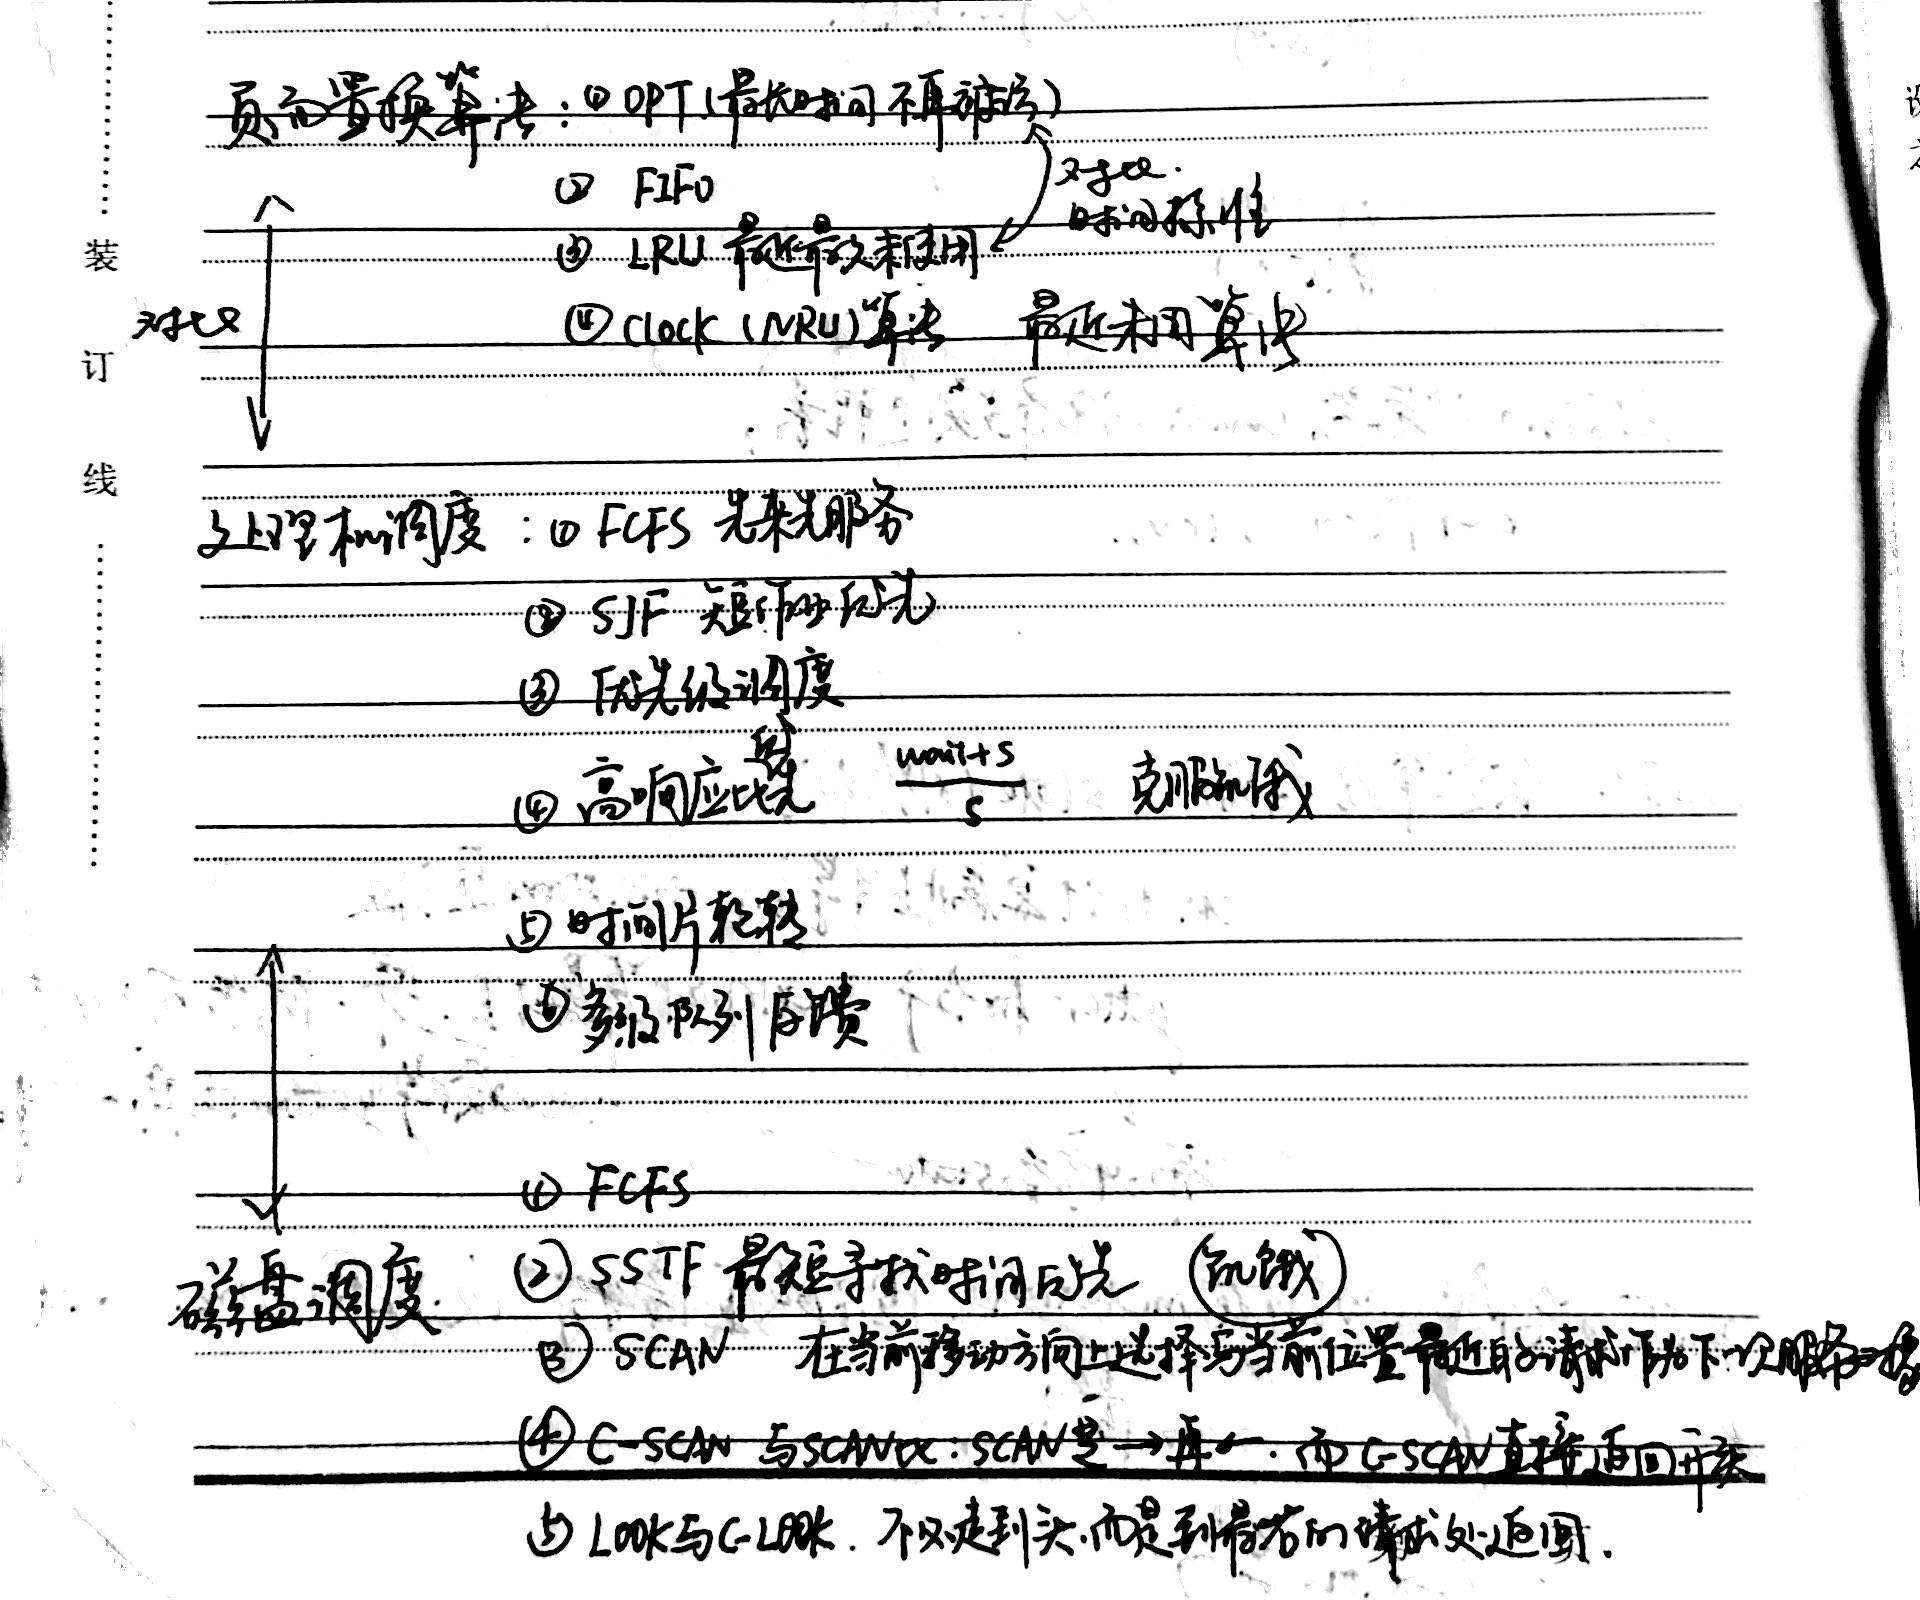 页面置换算法：① OPT（最长时间不再被访）
② FIFO
对比
时间操作
③ LRU 最近最久未使用
④ Clock (NRU)算法 最近未用算法
对比
装
订
线
处理机调度：① FCFS 先来先服务
② SJF 短作业优先
③ 优先级调度
④ 高响应比优先 wait+s / s 克服饥饿
⑤ 时间片轮转
⑥ 多级队列反馈
① FCFS
磁盘调度 ② SSTF 最短寻找时间优先 (饥饿)
③ SCAN 在当前移动方向上选择与当前位置最近的请求作为下一次服务对象
④ C-SCAN 与SCAN比：SCAN是→再←. 而C-SCAN直接返回开头
⑤ LOOK与C-LOOK. 不必走到头,而是到最后的请求处返回.